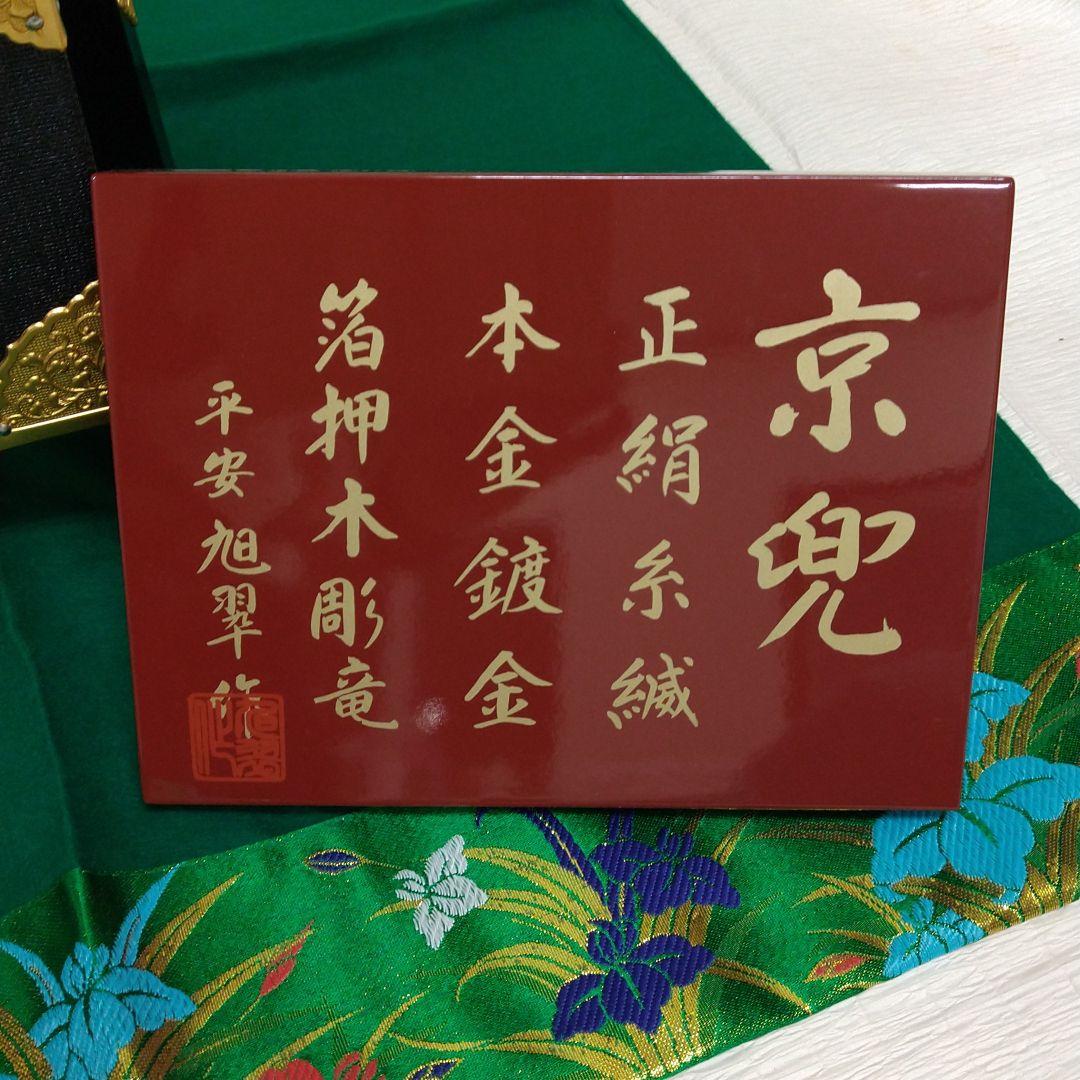 京兜
正絹糸縅
本金鍍金
箔押木彫竜
平安旭翠作